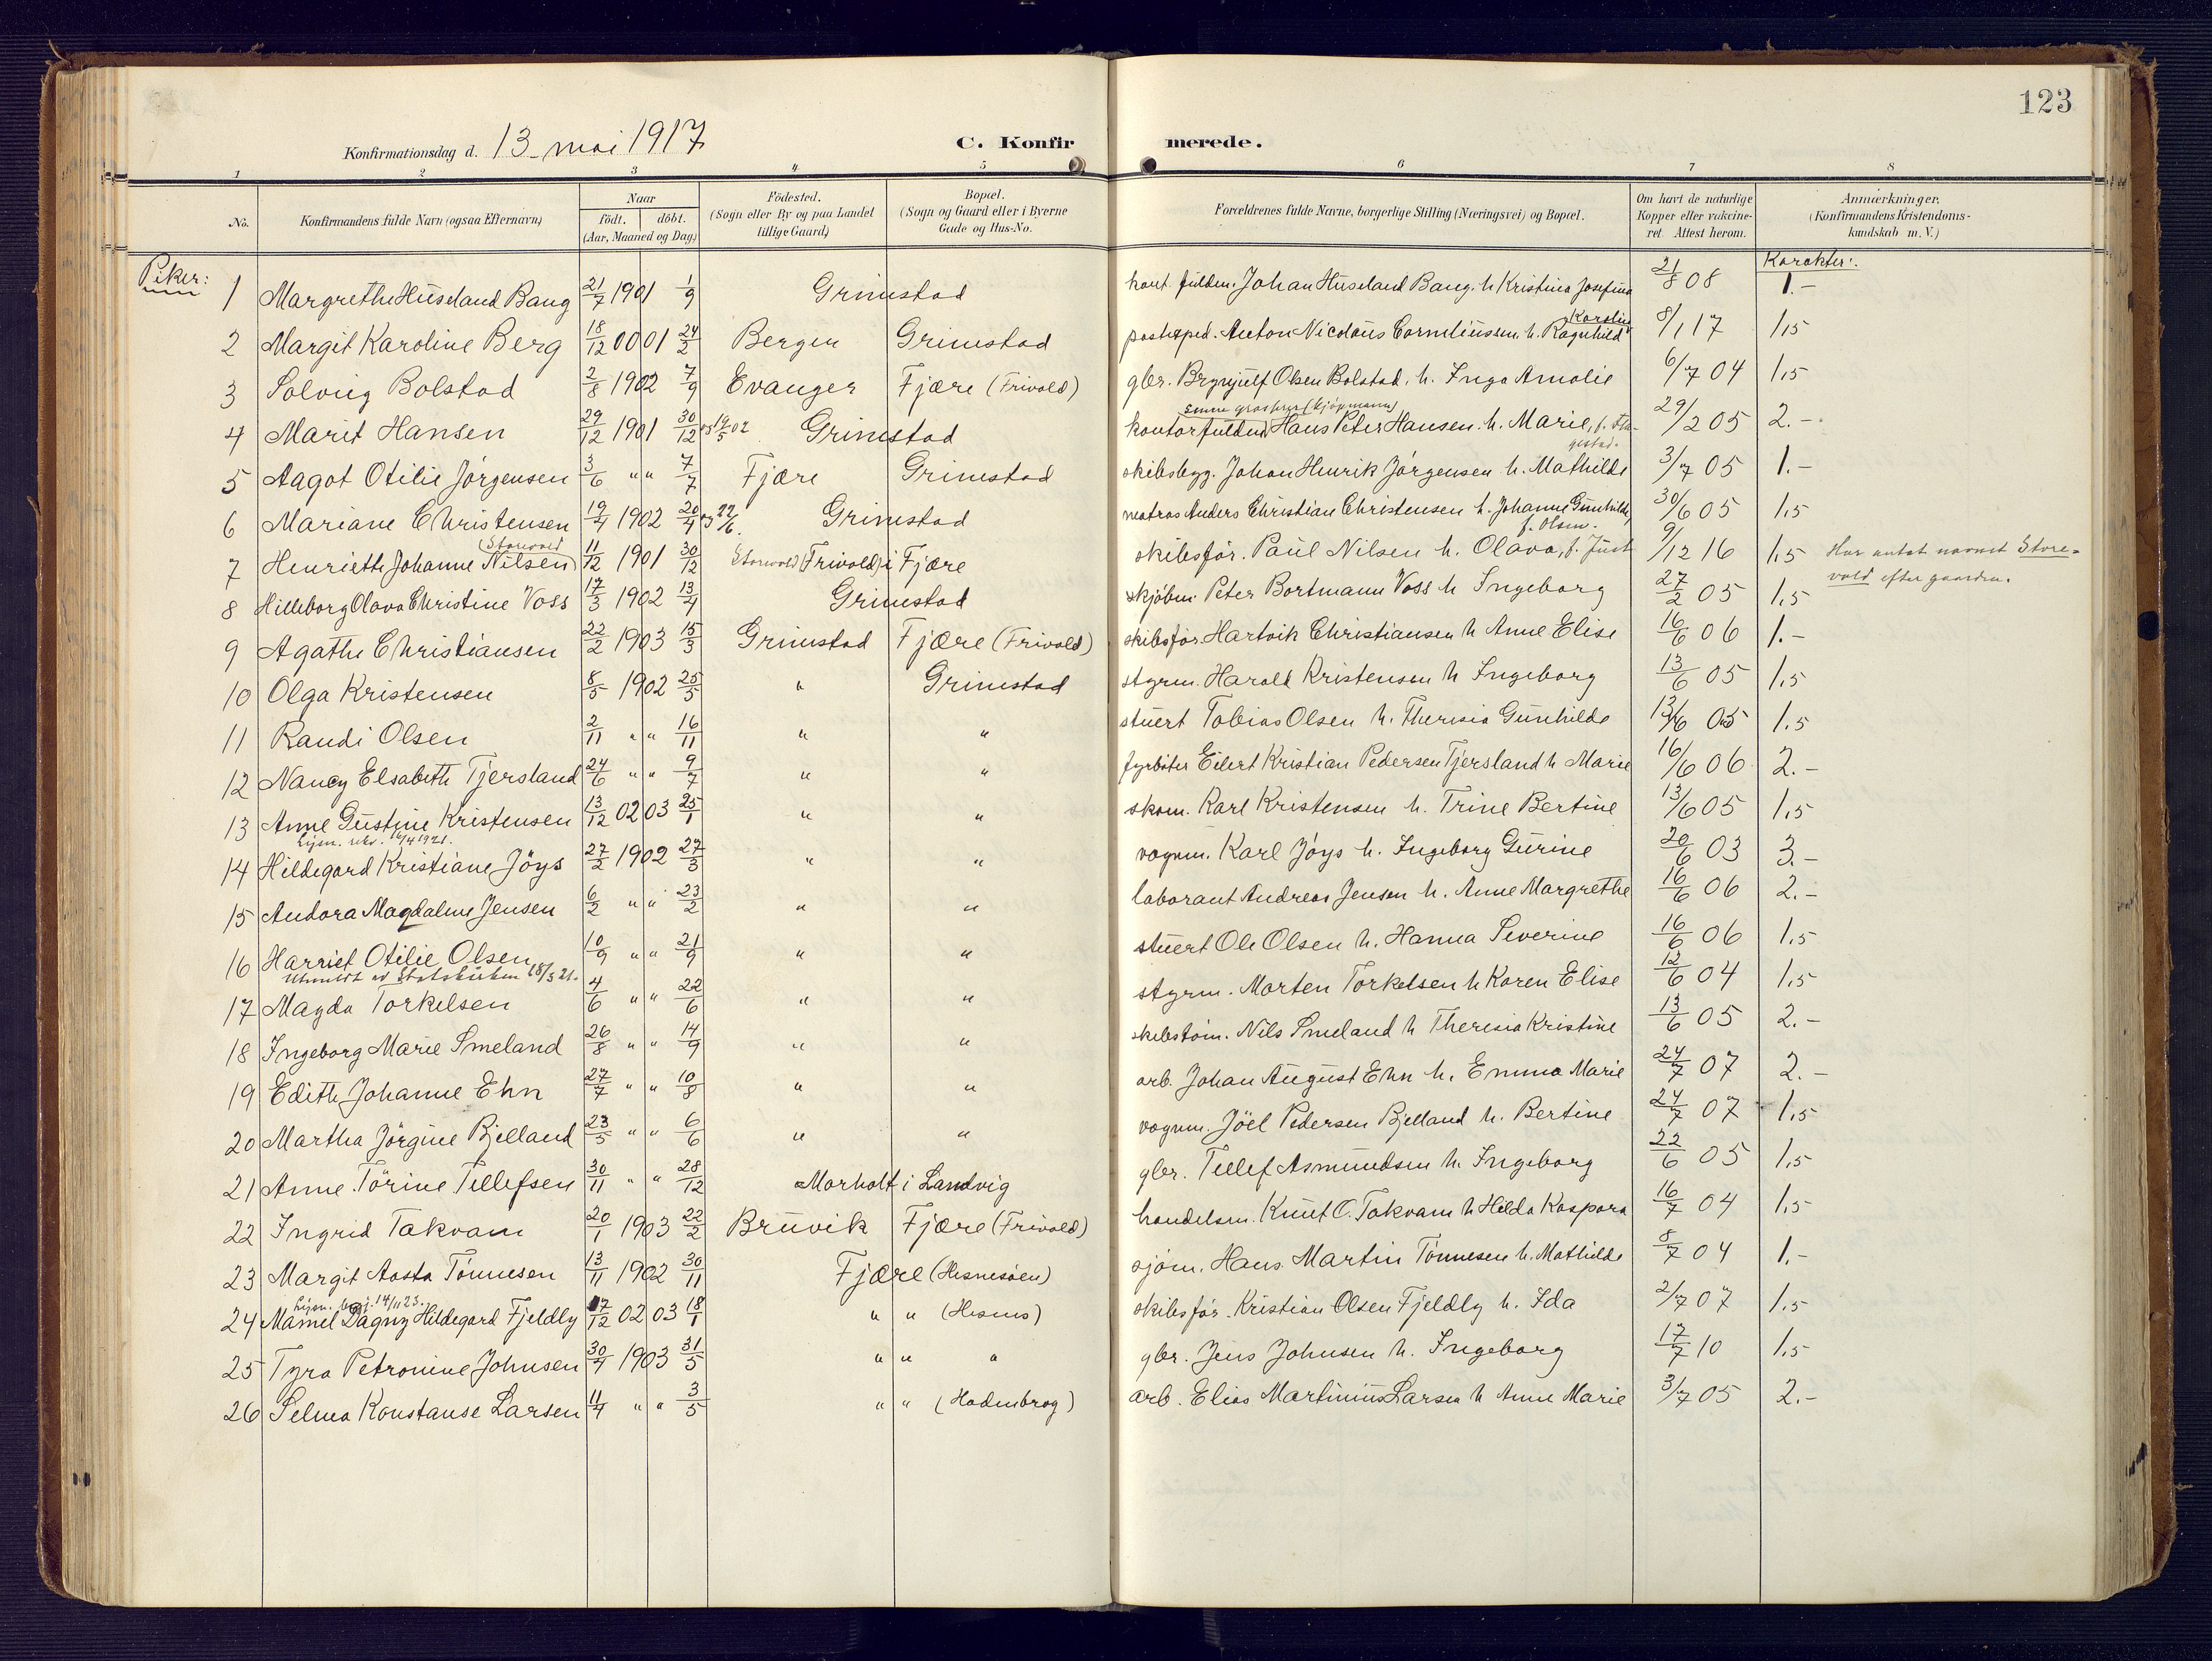 123
Konfirmationsdag d. 13 mai 1917
C. Konfirmerede.
1 2 3 4 5 6 7 8
No. Konfirmandens fulde Navn (ogsaa Efternavn) Naar födt. döbt. (Aar, Maaned og Dag) Födested. (Sogn eller By og paa Landet tillige Gaard) Bopæl. (Sogn og Gaard eller i Byerne Gade og Hus-No. Forældrenes fulde Navne, borgerlige Stilling (Næringsvei) og Bopæl. Om havt de naturlige Kopper eller vakcineret. Attest herom. Anmærkninger. (Konfirmandens Kristendomskundskab m. V.)
Piker: Karakter:
1 Margrethe Huseland Bang 21/7 1901 1/9 Grimstad Johan Huseland Bang. h. Kristina Josefina 21/8 08 1.-
2 Margit Karoline Berg 18/12 00 01 24/2 Bergen Grimstad postexped. Anton Nicolaus Corneliussen. h. Ragnhild Karoline 8/1 17 1,5
3 Solveig Bolstad 2/8 1902 7/9 Evanger Fjære (Frivold) gbr. Brynjulf Olsen Bolstad. h. Inga Amalie 6/7 04 1,5
4 Marit Hansen 29/12 1901 30/12 03 19/5 02 Grimstad kontorfuldm. Hans Peter Hansen. h. Marie, f. 29/2 05 2.-
5 Aagot Otilie Jörgensen 3/6 " " 7/7 Fjære Grimstad skibsbyg. Johan Henrik Jörgensen h. Mathilde 3/7 05 1.-
6 Mariane Christensen 19/4 1902 20/4 03 22/6. Grimstad matros Anders Christian Christensen h. Johanne Gunhilde, f. Olsen. 30/6 05 1,5
7 Henriette Johanne Nilsen (Storevold 11/12 1901 30/12 Storevold (Frivold) i Fjære skibsför. Paul Nilsen h. Olava, f. Just 9/12 16 1,5 Har antat navnet Storevold efter gaarden.
8 Hilleborg Olava Christine Voss 17/3 1902 13/4 Grimstad skjöbm. Peter Bortmann Voss h Ingeborg 27/2 05 1,5
9 Agathe Christiansen 22/2 1903 15/3 Grimstad Fjære (Frivold) skibsför Hartvik Christiansen h Anne Elise 16/6 06 1.-
10 Olga Kristensen 8/5 1902 25/5 " Grimstad styrm. Harald Kristensen h Ingeborg 13/6 05 1,5
11 Randi Olsen 2/11 " " 16/11 " " stuert Tobias Olsen h. Theresia Gunhilde 13/6 05 1.5
12 Nancy Elsabeth Tjersland 24/6 " " 9/7 " " fyrböter Eilert Kristian Pedersen Tjersland h Marie 16/6 06 2.-
13 Anne Gustine Kristensen 13/12 02 03 25/1 " " skom. Karl Kristensen h. Trine Bertine 13/6 05 1,5
14 Hildegard Kristiane Jöys 27/2 1902 27/3 " " vognm. Karl Jöys h. Ingeborg Gurine 20/6 03 3.-
15 Andora Magdalene Jensen 6/2 " " 23/2 " " laborant Andreas Jensen h. Anne Margrethe 16/6 06 2.-
16 Harriet Otilie Olsen 10/9 " " 21/9 " " stuert Ole Olsen h. Hanna Severine 16/6 06 1.5
Utmeldt av Statskirken 18/3 21.
17 Magda Torkelsen 4/6 " " 22/6 " " styrm. Morten Torkelsen h Karen Elise 12/6 04 1,5
18 Ingeborg Marie Smeland 26/8 " " 14/9 " " skibstöm. Nils Smeland h Theresia Kristine 13/6 05 2.-
19 Edith Johanne Ehn 27/7 " " 10/8 " " arb. Johan August Ehn h. Emma Marie 24/7 07 2.-
20 Martha Jörgine Bjelland 23/5 " " 6/6 " " vognm. Jöel Pedersen Bjelland h. Bertine 24/7 07 1,5
21 Anne Törine Tellefsen 30/11 " " 28/12 Morholt i Landvig gbr. Tellef Asmundsen h. Ingeborg 22/6 05 1,5
22 Ingrid Takvam 20/1 1903 22/2 Bruvik Fjære (Frivold) handelsm. Knut O. Takvam h Hilda Kaspara 16/7 04 1,5
23 Margit Aasta Tönnesen 13/11 1902 30/11 Fjære (Hesnesöen) sjöm. Hans Martin Tönnesen h. Mathilde 8/7 04 1.-
24 Mamel Dagny Hildegard Fjeldly 17/12 02 03 18/1 " " (Hesnes) skibsför. Kristian Olsen Fjeldly h. Ida 2/7 07 1,5
25 Tyra Petronine Johnsen 30/4 1903 31/5 " " " gbr. Jens Johnsen h. Ingeborg 17/7 10 1,5
26 Selma Konstanse Larsen 11/4 " " 3/5 " " arb. Elias Martinius Larsen h Anne Marie 3/7 05 2.-